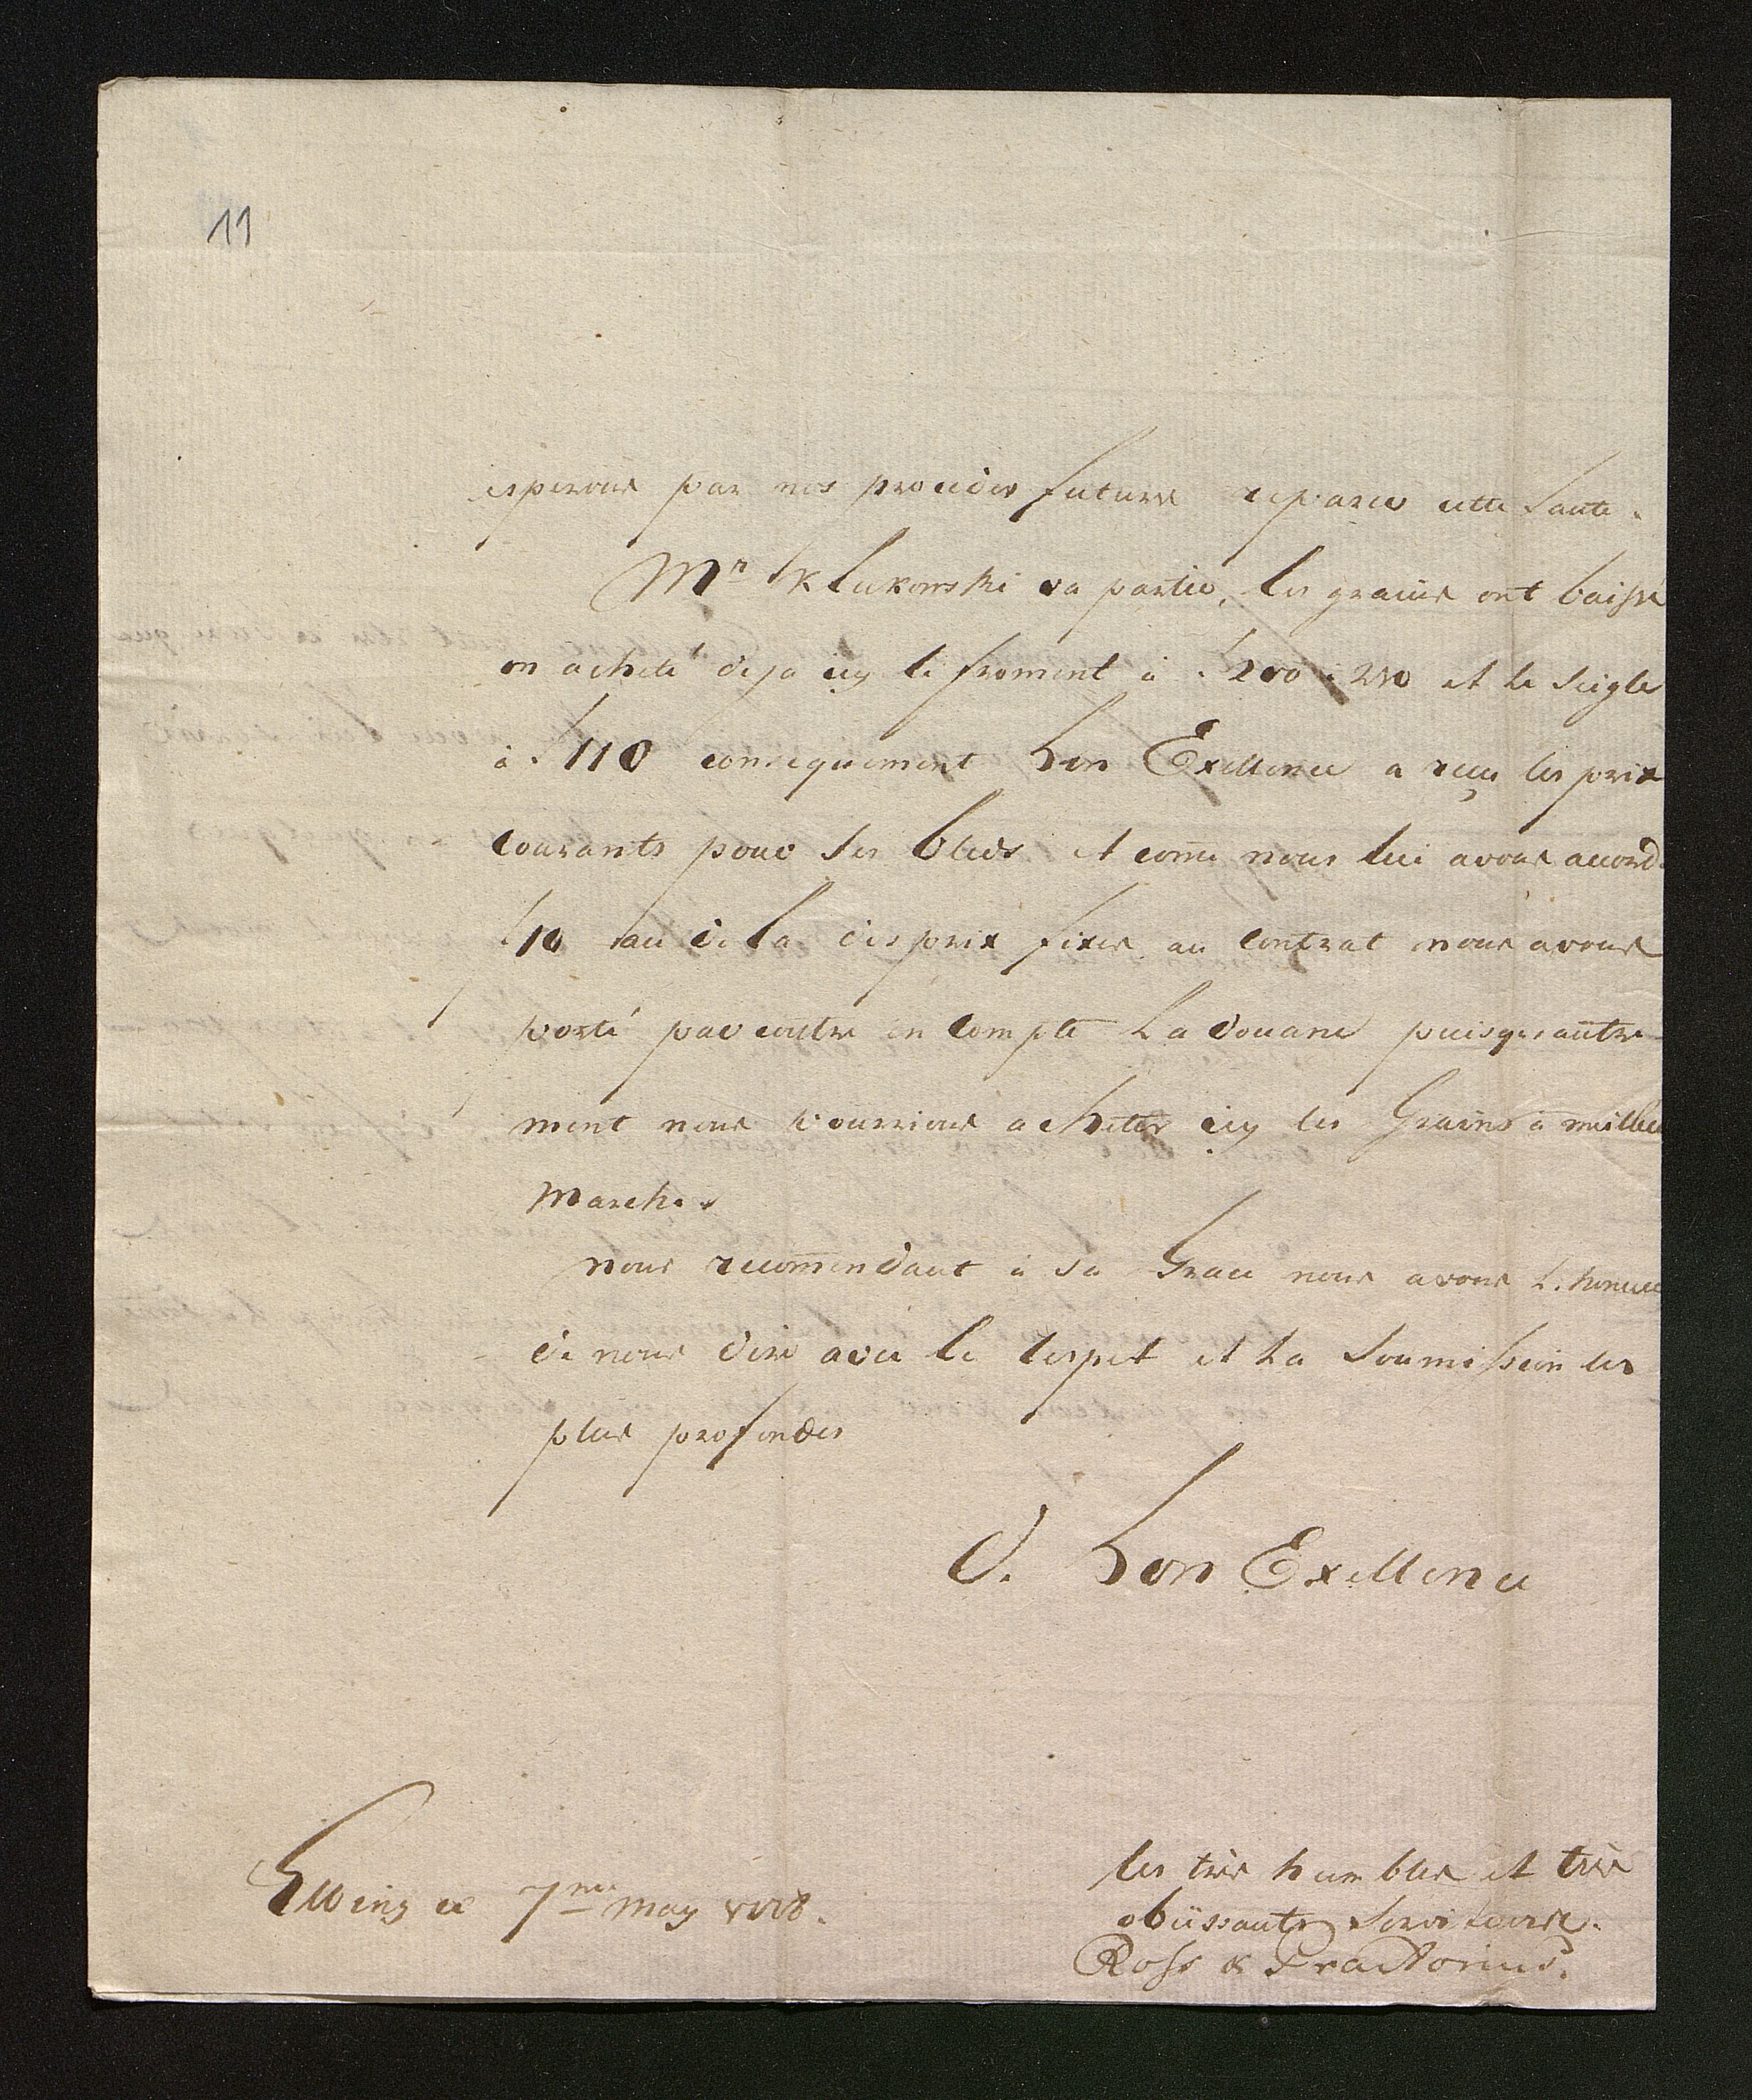 11
esperons par nos procedes futurs reparer cette faute.
Mr Klukowski va partir, les grains ont baissé
on acheté deja icy le froment à f 200 à 210 et le seigle
à f 110 consequement Son Exellence a reçu les prix
courants pour ses bleds et come nous lui avons accord
f 10 au de la des prix fixes au contrat nous avons
porté par contre en Compte La Douane puisque autre-
ment nous pourrions acheter icy les Grains à meilleu
marche.
nous recommendant à Sa Grace nous avons L'honeur
de nous dire avec le respet et La Soumission les
plus profondes
D. Son Exellence
Elbing ce 7me May
les très humbles et très
obeissants Serviteurs.
Ross & Praetorius.